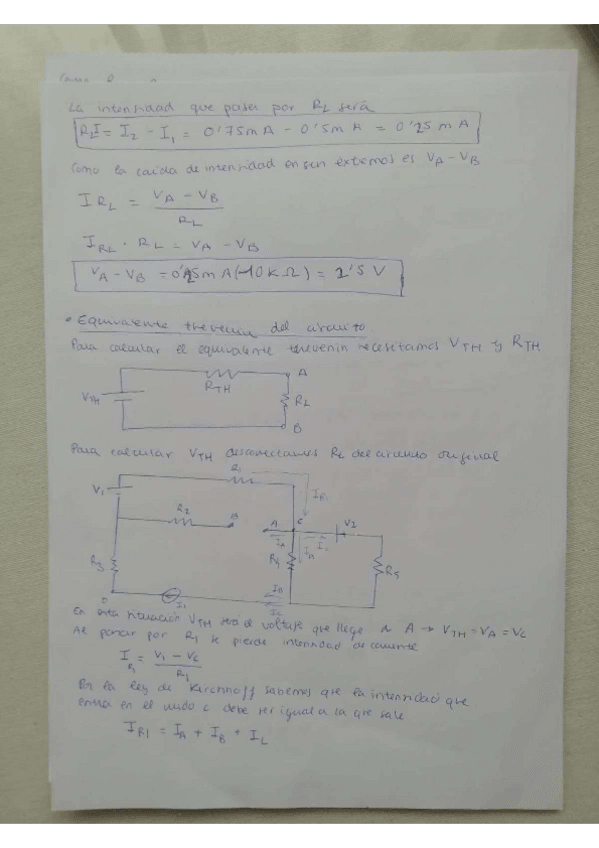 La intensidad que pasa por RL será
RLI = I2 - I1 = 0'75mA - 0'5mA = 0'25 mA
Como la caída de intensidad en sus extremos es VA - VB
IRL = VA - VB
RL
IRL · RL = VA - VB
VA - VB = mA(-10KΩ) = 1'5 V
• Equivalente thevenin del circuito.
Para calcular el equivalente thevenin necesitamos VTH y RTH
A
RTH
VTH
RL
B
Para calcular VTH desconectamos RL del circuito original
R1
V1
IR1
R2
B
A
C
V2
R3
R4
R5
D
I1
En esta situación VTH será el voltaje que llega a A → VTH = VA = VC
Al pasar por R1 se pierde intensidad de corriente
IR1 = V1 - VC
R1
Por la ley de Kirchhoff sabemos que la intensidad que
entra en el nudo C debe ser igual a la que sale
IR1 = IA + IB + IL